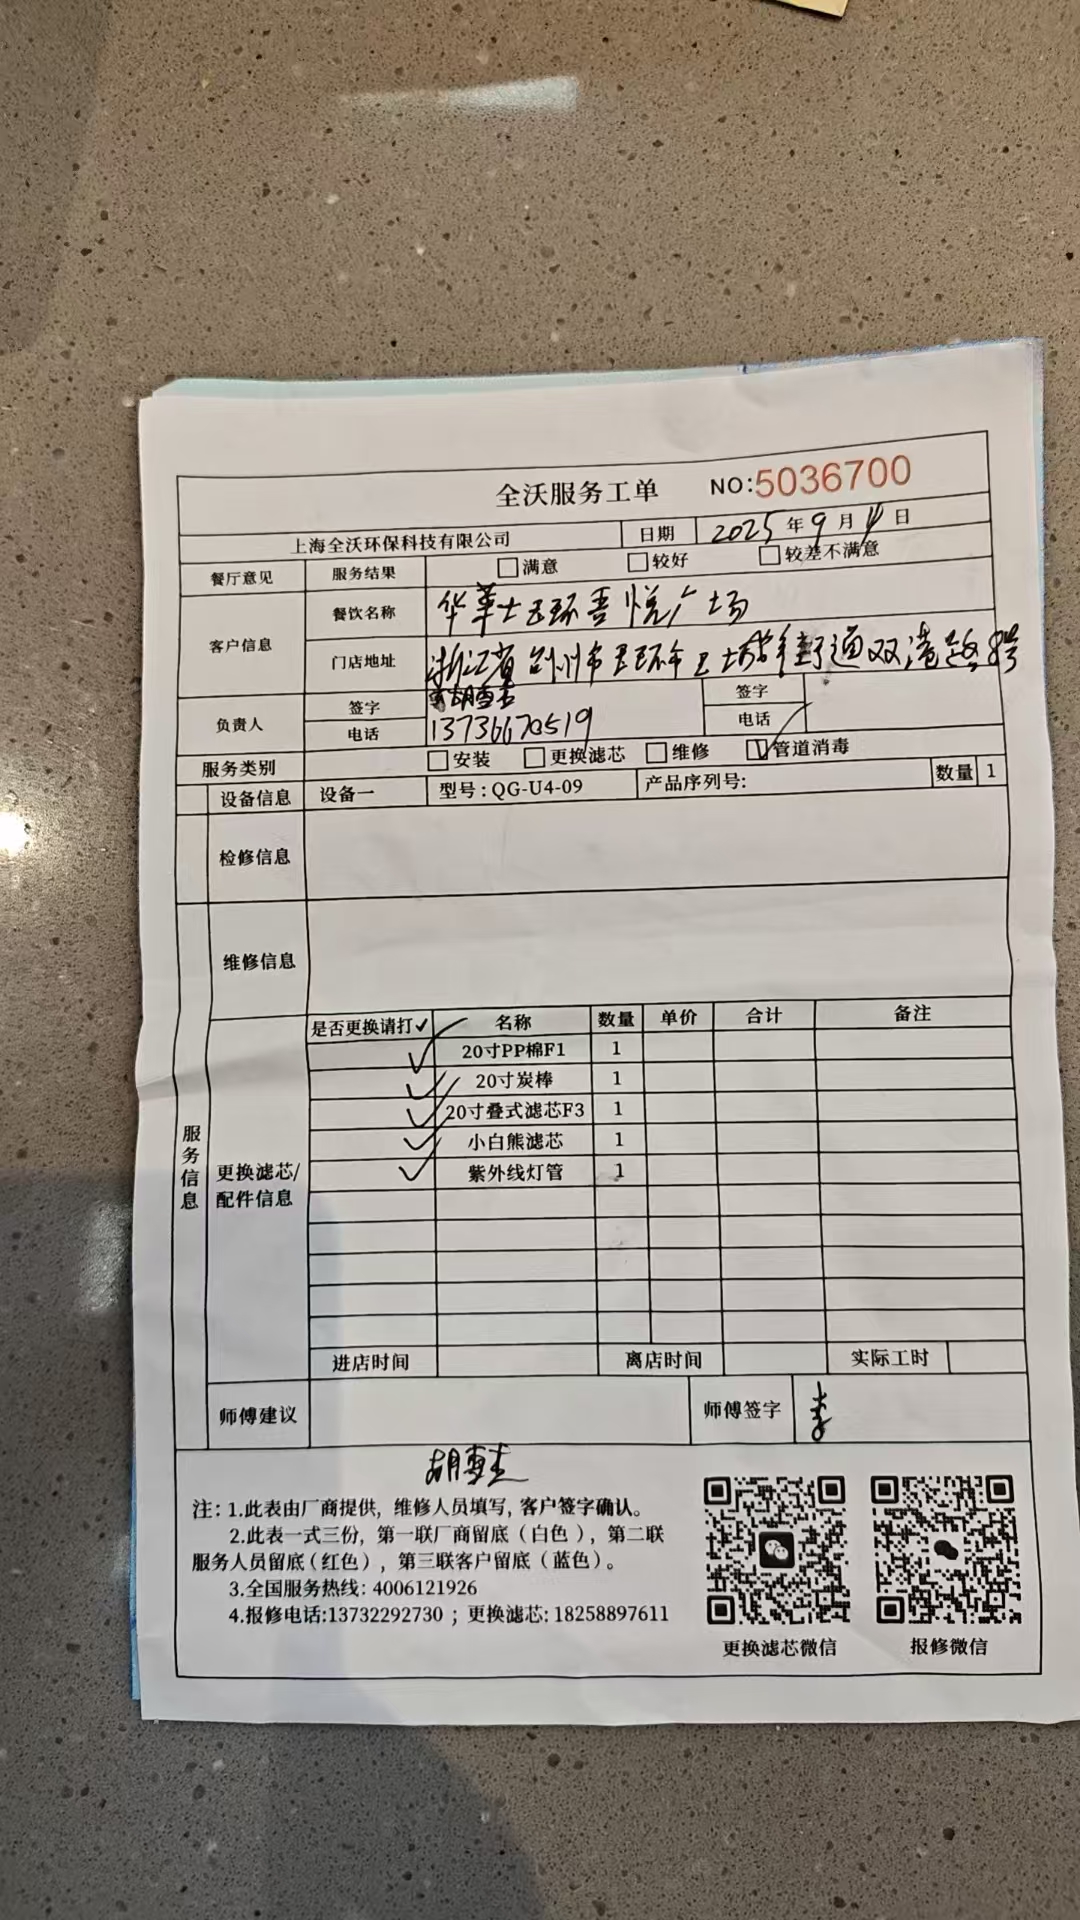 全沃服务工单 NO:5036700
上海全沃环保科技有限公司 日期 2025年9月4日
餐厅意见 服务结果 满意 较好 较差不满意
客户信息 餐饮名称 华莱士玉环吾悦广场
门店地址 浙江省台州市玉环市玉城街道双港路
负责人 签字 胡
电话 13736670519
签字
电话
服务类别 安装 更换滤芯 维修 管道消毒
设备信息 设备一 型号:QG-U4-09 产品序列号: 数量 1
检修信息
维修信息
服务信息
更换滤芯/配件信息
是否更换请打✓ 名称 数量 单价 合计 备注
✓ 20寸PP棉F1 1
✓ 20寸炭棒 1
✓ 20寸叠式滤芯F3 1
✓ 小白熊滤芯 1
✓ 紫外线灯管 1
进店时间 离店时间 实际工时
师傅建议 师傅签字 李
胡
注: 1.此表由厂商提供, 维修人员填写, 客户签字确认。
2.此表一式三份, 第一联厂商留底(白色), 第二联
服务人员留底(红色), 第三联客户留底(蓝色)。
3.全国服务热线: 4006121926
4.报修电话:13732292730 ; 更换滤芯: 18258897611
更换滤芯微信 报修微信